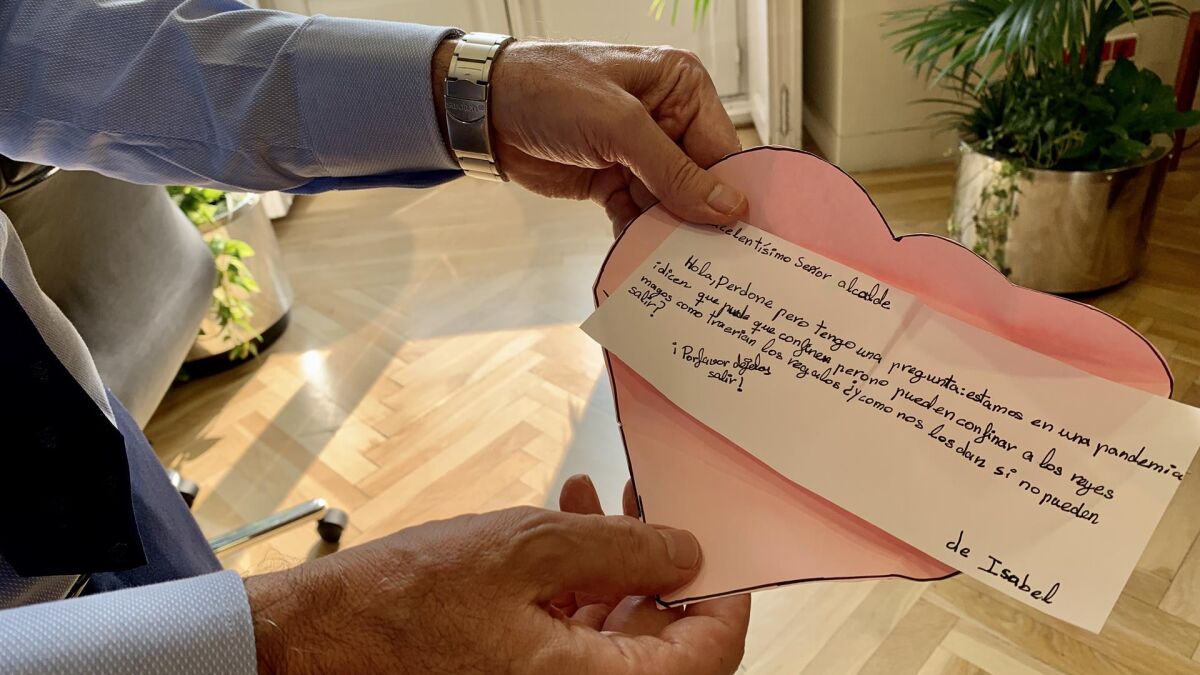 celentísimo Señor alcalde
Hola, Perdone pero tengo una pregunta: estamos en una pandemia
¡dicen que puede que confinen pero no pueden confinar a los reyes
magos como traerian los regalos ¿y como nos los dan si no pueden
salir?
¡Porfavor déjelos
salir!
de Isabel